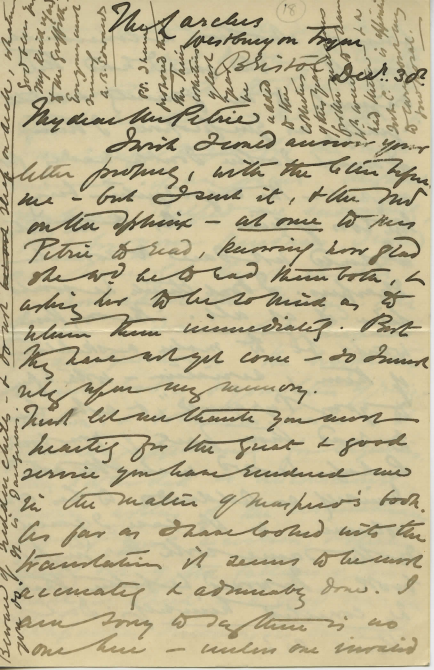 The Larches
Westbury on Trym
Bristol
Decr. 30th
My dear Mr Petrie
I wish I could answer your
letter properly, with the letter before
me - but I sent it, & the
on the Sphinx - at once to Mrs
Petrie to read, knowing how glad
she wd be to read them both, &
asking her to be so kind as to
return them immediately. But
they have not yet come - so I must
rely upon my memory.
First let me thank you most
heartily for the great & good
service you have rendered me
in the matter of Maspero's book.
As far as I have looked into the
translation it seems to be most
accurately & admirably done. I
am sorry to say there is no
one here - unless one invalid
Beware of sudden chills - & do not sleep on deck, when
you do! It is dangerous.
God bless you
My kind regards
to the Griffiths
Everyours most
sincerely
A.B. Edwards